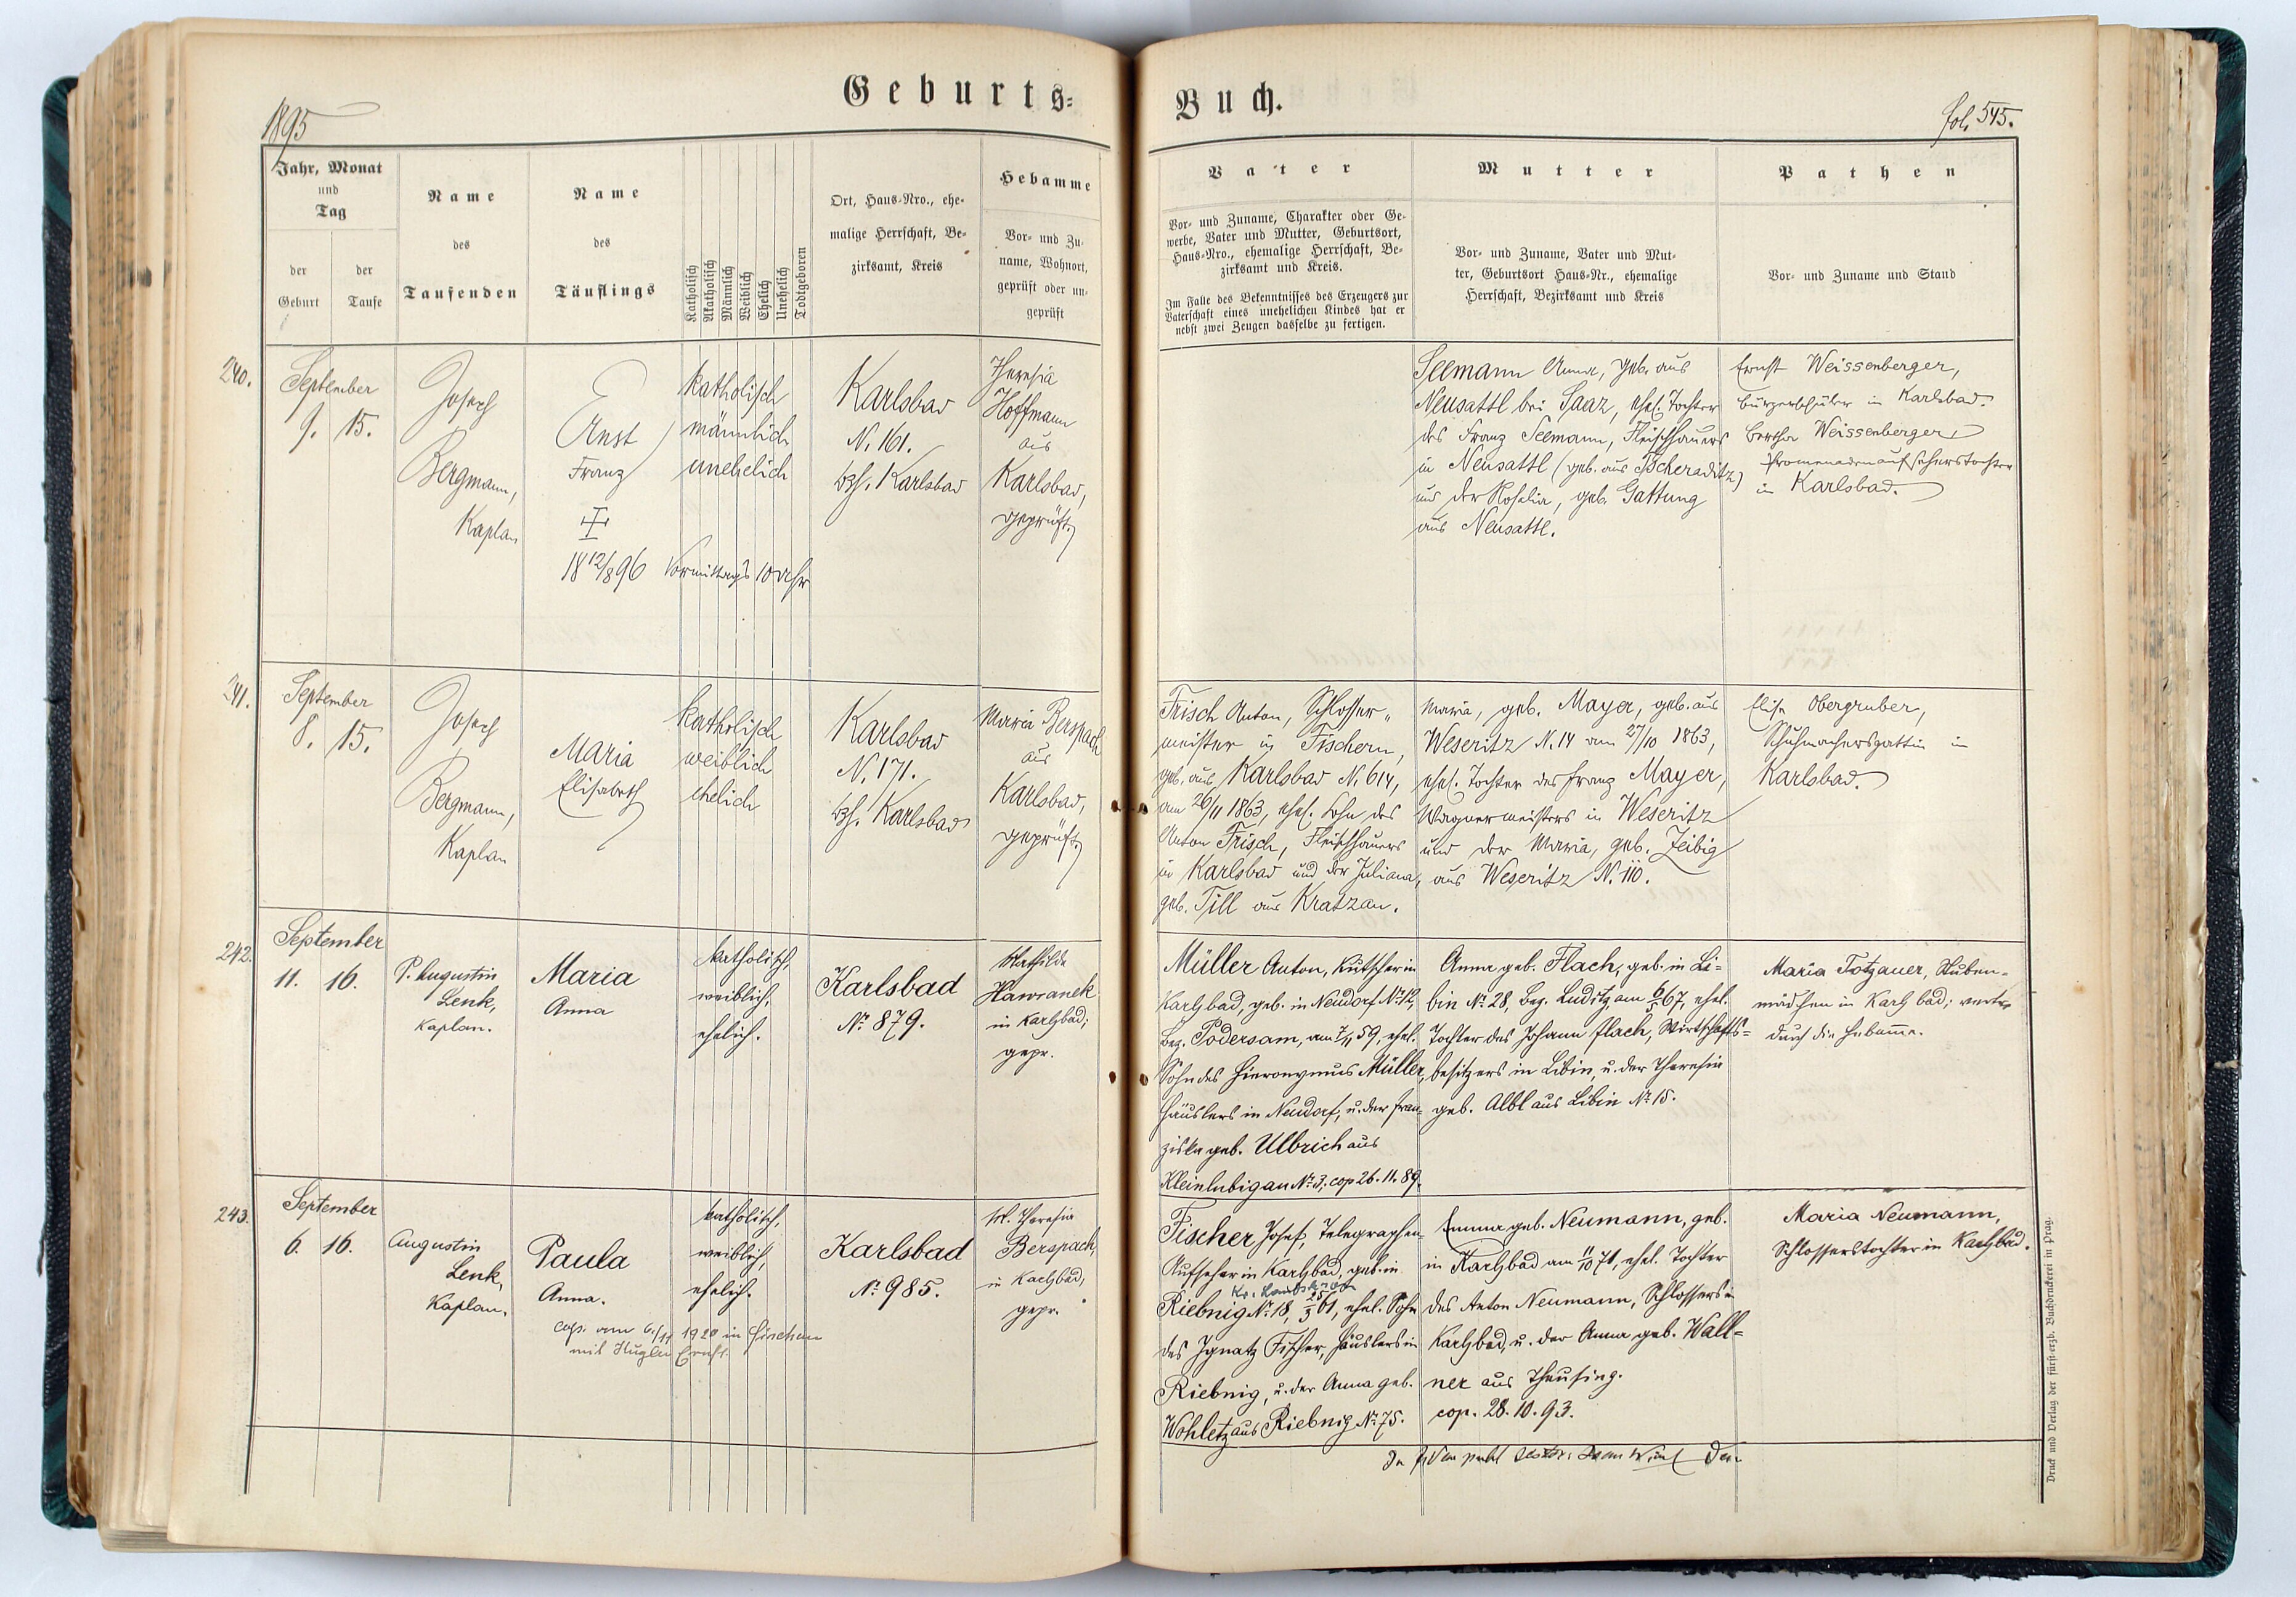 1895
Geburts-
Buch.
fol. 545.
Jahr, Monat
und
Tag
der
Geburt
der
Taufe
Name
des
Taufenden
Name
des
Täuflings
Katholisch
Akatholisch
Männlich
Weiblich
Ehelich
Unehelich
Todtgeboren
Ort, Haus-Nro., ehe-
malige Herrschaft, Be-
zirksamt, Kreis
Hebamme
Vor- und Zu-
name, Wohnort,
geprüft oder un-
geprüft
Vater
Vor- und Zuname, Charakter oder Ge-
werbe, Vater und Mutter, Geburtsort,
Haus-Nro., ehemalige Herrschaft, Be-
zirksamt und Kreis.
Im Falle des Bekenntnisses des Erzeugers zur
Vaterschaft eines unehelichen Kindes hat er
nebst zwei Zeugen dasselbe zu fertigen.
Mutter
Vor- und Zuname, Vater und Mut-
ter, Geburtsort Haus-Nr., ehemalige
Herrschaft, Bezirksamt und Kreis
Pathen
Vor- und Zuname und Stand
240.
September
9. 15.
Joseph
Bergmann,
Kaplan
Ernst
Franz
18 12/8 96 Vormittags 10 Uhr
katholisch
männlich
unehelich
Karlsbad
N. 161.
Bzh. Karlsbad
Theresia
Hoffmann
aus
Karlsbad,
geprüft.
Seemann Anna, geb. aus
Neusattl bei Saaz, ehel. Tochter
des Franz Seemann, Fleischhauers
in Neusattl (geb. aus Tscheraditz)
und der Rosalia, geb. Gattung
aus Neusattl.
Ernst Weissenberger,
Bürgerschüler in Karlsbad.
Bertha Weissenberger
Promenadenaufseherstochter
in Karlsbad.
241.
September
8. 15.
Joseph
Bergmann,
Kaplan
Maria
Elisabeth
katholisch
weiblich
ehelich
Karlsbad
N. 171.
Bzh. Karlsbad
Maria Berspach
aus
Karlsbad,
geprüft.
Frisch Anton, Schlosser-
meister in Fischern,
geb. aus Karlsbad N. 614,
am 26/11 1863, ehel. Sohn des
Anton Frisch, Fleischhauers
in Karlsbad und der Juliana,
geb. Till aus Kratzau.
Maria, geb. Mayer, geb. aus
Weseritz N. 14 am 27/10 1863,
ehel. Tochter des Franz Mayer,
Wagnermeisters in Weseritz
und der Maria, geb. Zeibig
aus Weseritz N. 110.
Elise Obergruber,
Schuhmachersgattin in
Karlsbad.
242.
September
11. 16.
P. Augustin
Lenk,
Kaplan.
Maria
Anna
katholisch,
weiblich,
ehelich.
Karlsbad
No 879.
Mathilde
Hawranek
in Karlsbad;
gepr.
Müller Anton, Kutscher in
Karlsbad, geb. in Neudorf No 12,
Bez. Podersam, am 7/11 59, ehel.
Sohn des Hieronymus Müller,
Häuslers in Neudorf, u. der Fran-
ziska geb. Ulbrich aus
Kleinlubigau No 3; cop 26. 11. 89.
Anna geb. Flach, geb. in Li-
bin No 28, Bez. Luditz am 6/5 67, ehel.
Tochter des Johann Flach, Wirtschafts-
besitzers in Libin, u. der Theresia
geb. Albl aus Libin No 15.
Maria Totzauer, Stuben-
mädchen in Karlsbad; vertr.
durch die Hebamme.
243.
September
6. 16.
Augustin
Lenk,
Kaplan.
Paula
Anna.
cop. am 6./11 1920 in Fischern
mit Kugler Ernst.
katholisch,
weiblich,
ehelich.
Karlsbad
No 985.
M. Theresia
Berspach,
in Karlsbad,
gepr.
Fischer Josef, Telegraphen-
Aufseher in Karlsbad, geb. in
Riebnig No 18, 25/3 61, ehel. Sohn
des Ignatz Fischer, Häuslers in
Riebnig, u. der Anna geb.
Wohletz aus Riebnig No 75.
Emma geb. Neumann, geb.
in Karlsbad am 11/10 71, ehel. Tochter
des Anton Neumann, Schlossers in
Karlsbad, u. der Anna geb. Wall-
ner aus Theusing.
cop. 28. 10. 93.
Maria Neumann,
Schlosserstochter in Karlsbad.
Druck und Verlag der fürsterzb. Buchdruckerei in Prag.